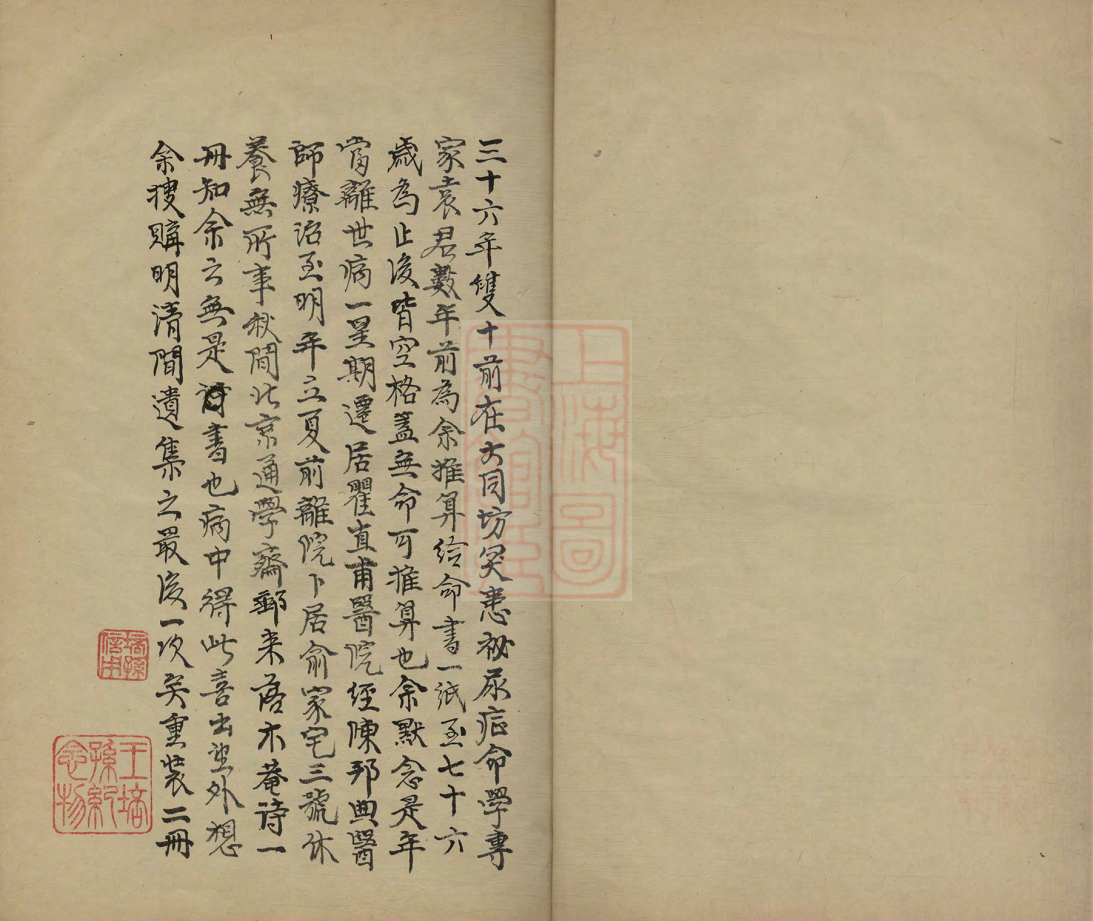 三十六年雙十前在大同坊突患祕尿症命學專
家袁君數年前為余推算給命書一紙至七十六
歲為止後皆空格蓋無命可推算也余默念是年
當離世病一星期遷居瞿直甫醫院經陳邦典醫
師療治至明年立夏前離院卜居俞家宅三號休
養無所事秋間北京通學齋郵来落木菴诗一
冊知余云無是詩書也病中得此喜出望外想
余搜購明清間遺集之最後一次矣重裝二冊
王培
孫紀
念物
上海圖
書館藏